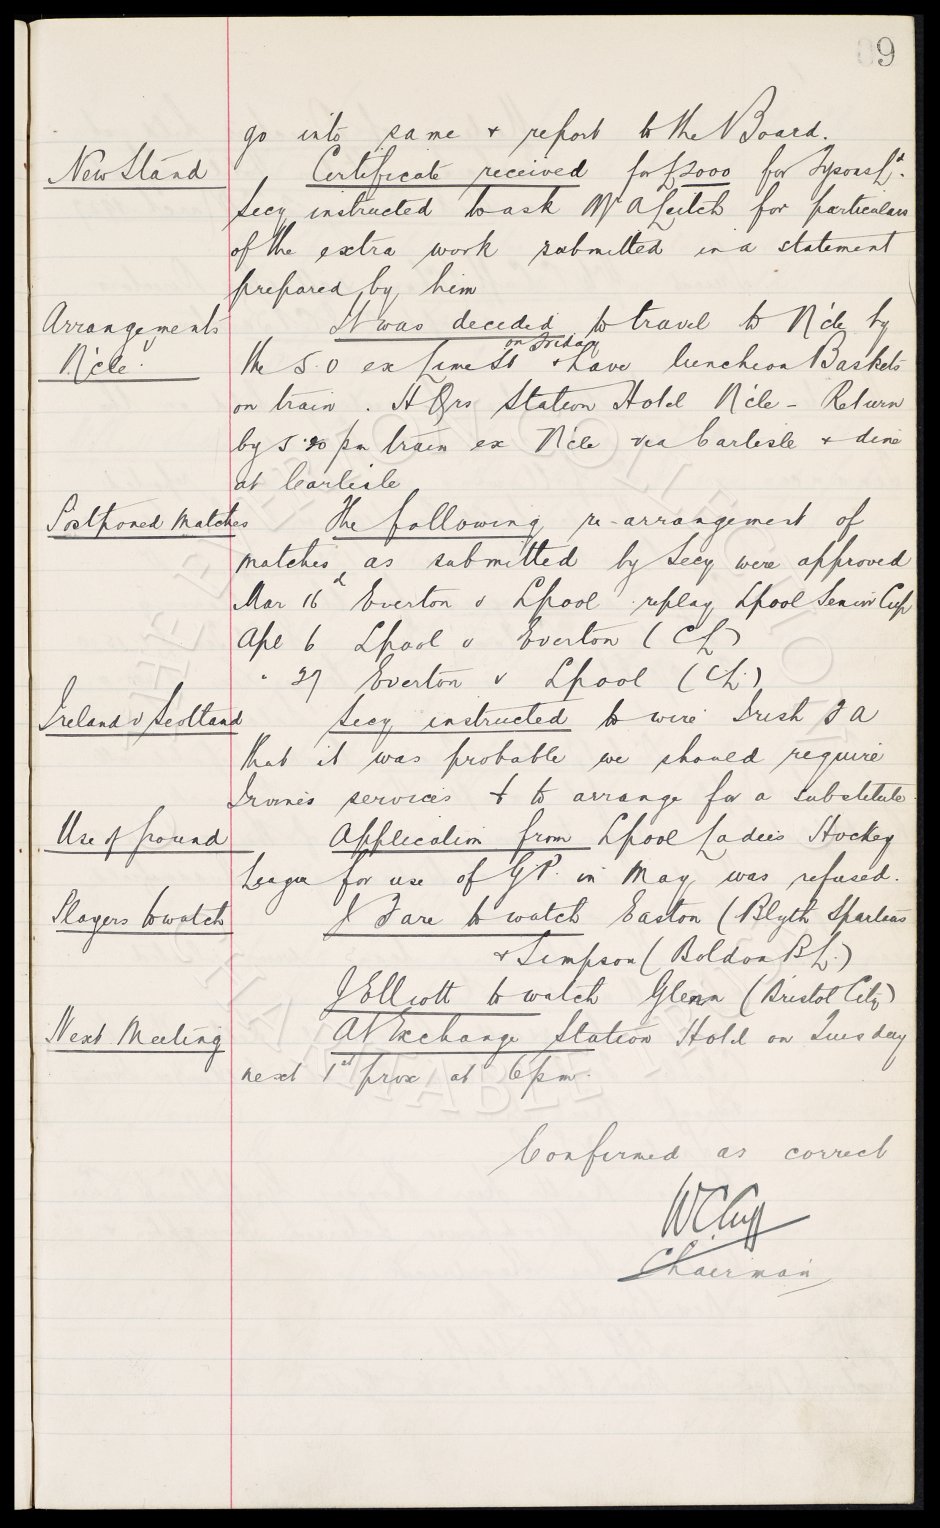 89
go into same & report to the Board.
New Stand Certificate received for £2000 for Tysons Ld.
Secy instructed to ask Mr A Leitch for particulars
of the extra work submitted in a statement
prepared by him
Arrangements It was decided to travel to N'cle by
on Friday
N'cle. the 5.0 ex Lime St & have luncheon Baskets
on train. H Qrs Station Hotel N'cle - Return
by 5.20 pm train ex N'cle via Carlisle & dine
at Carlisle
Postponed Matches The following re-arrangement of
matches, as submitted by Secy were approved
Mar 16 Everton v Lpool replay Lpool Senior Cup
Apl 6 Lpool v Everton (CL)
" 27 Everton v Lpool (CL)
Ireland v Scotland Secy instructed to wire Irish FA
that it was probable we should require
Irvine's services & to arrange for a substitute.
Use of ground Application from Lpool Ladies Hockey
League for use of GP. in May was refused.
Players to watch J Fare to watch Easton (Blyth Spartans
& Simpson (Boldon BL.)
J Elliott to watch Glenn (Bristol City)
Next Meeting At Exchange Station Hotel on Tuesday
next 1st prox at 6pm.
Confirmed as correct
W.C. Cuff
Chairman
THE EVERTON COLLECTION
CHARITABLE TRUST